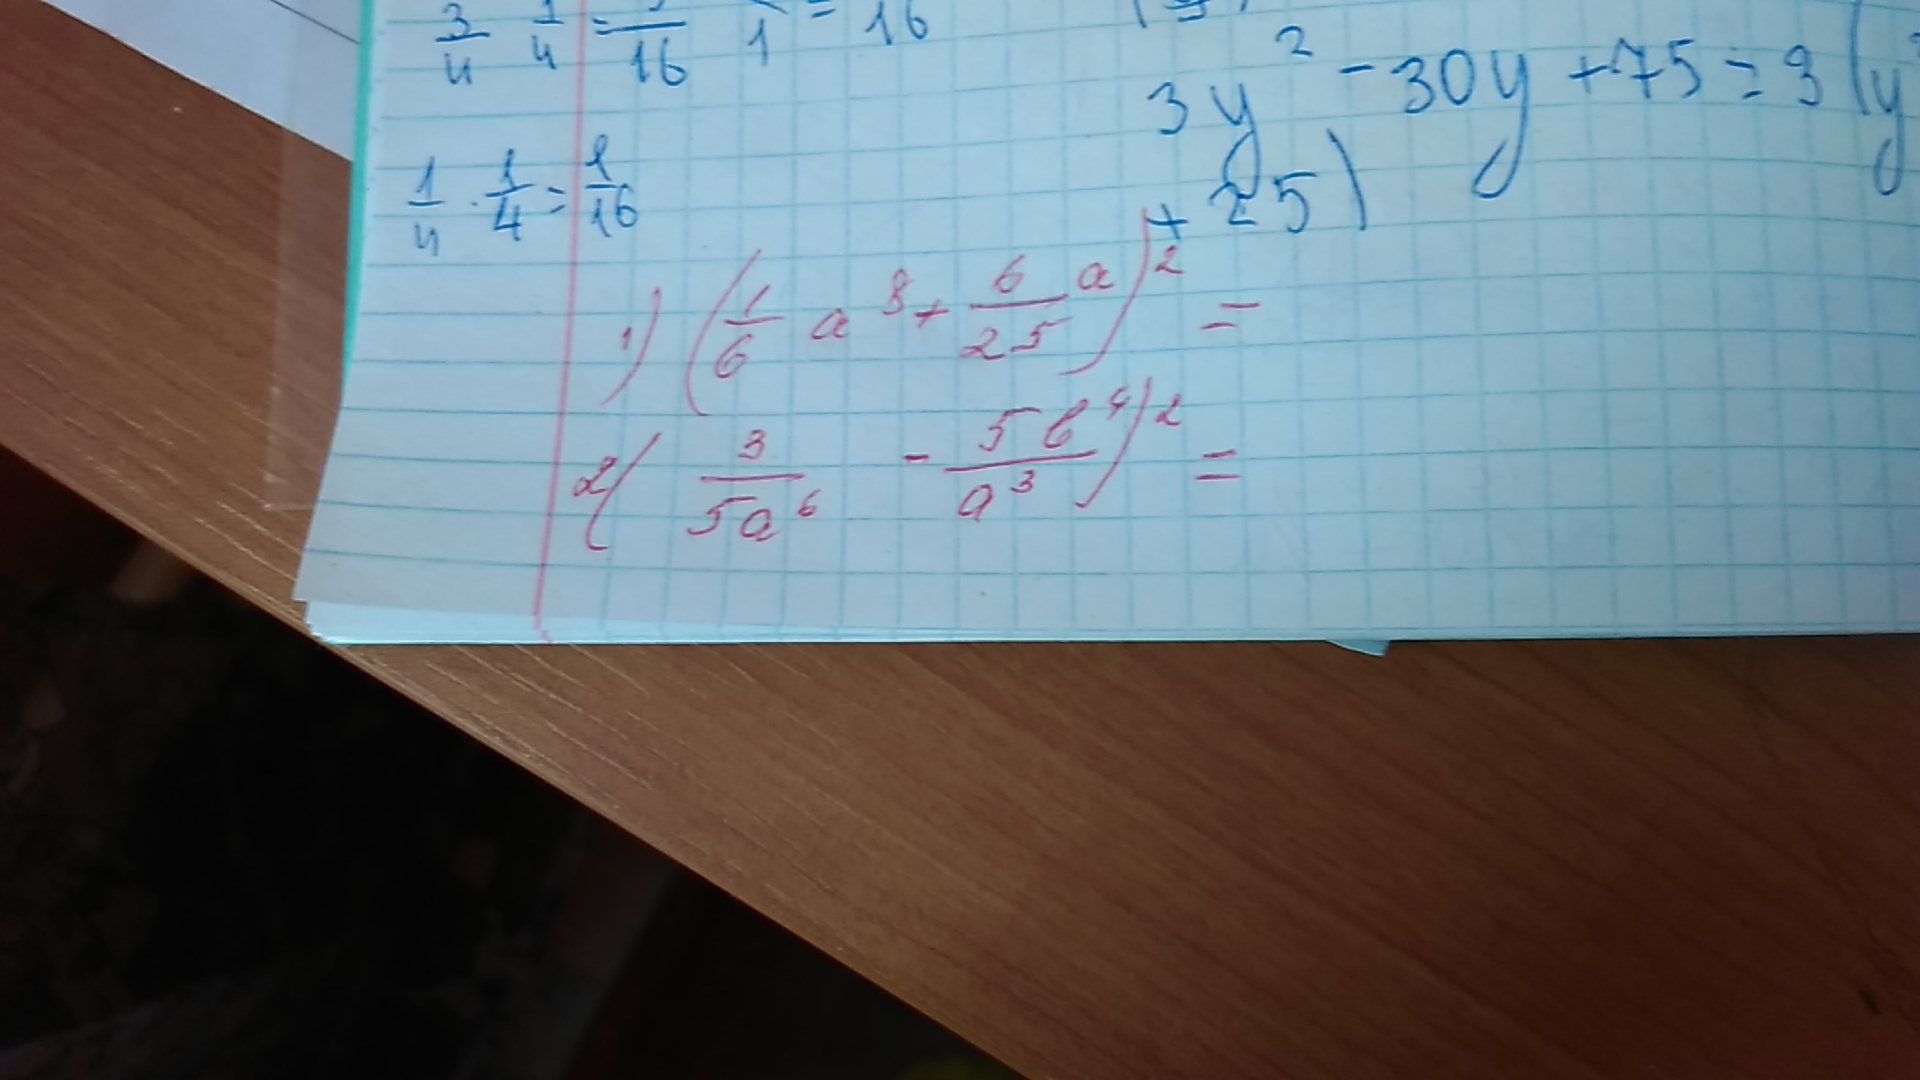 3/4 1/4 = /16 1 = 16
3y² - 30y + 75 = 3(y²
1/4 · 1/4 = 1/16
+ 25)
1) (1/6 a⁸ + 6/25 a)² =
2( 3/5a⁶ - 5b⁴/a³)² =